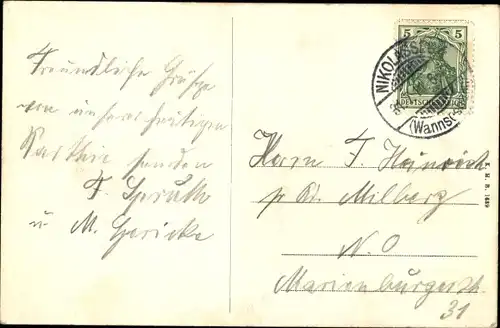 Freundliche Grüße
von unserer heutigen
Parthie senden
F. Spruth
u M. Gericke
5 5
DEUTSCHES REICH
NIKOLASSEE
(Wannseebahn)
Herrn F. Heinrich
p Ad. Milberg
N.O
Marienburgerstr.
31